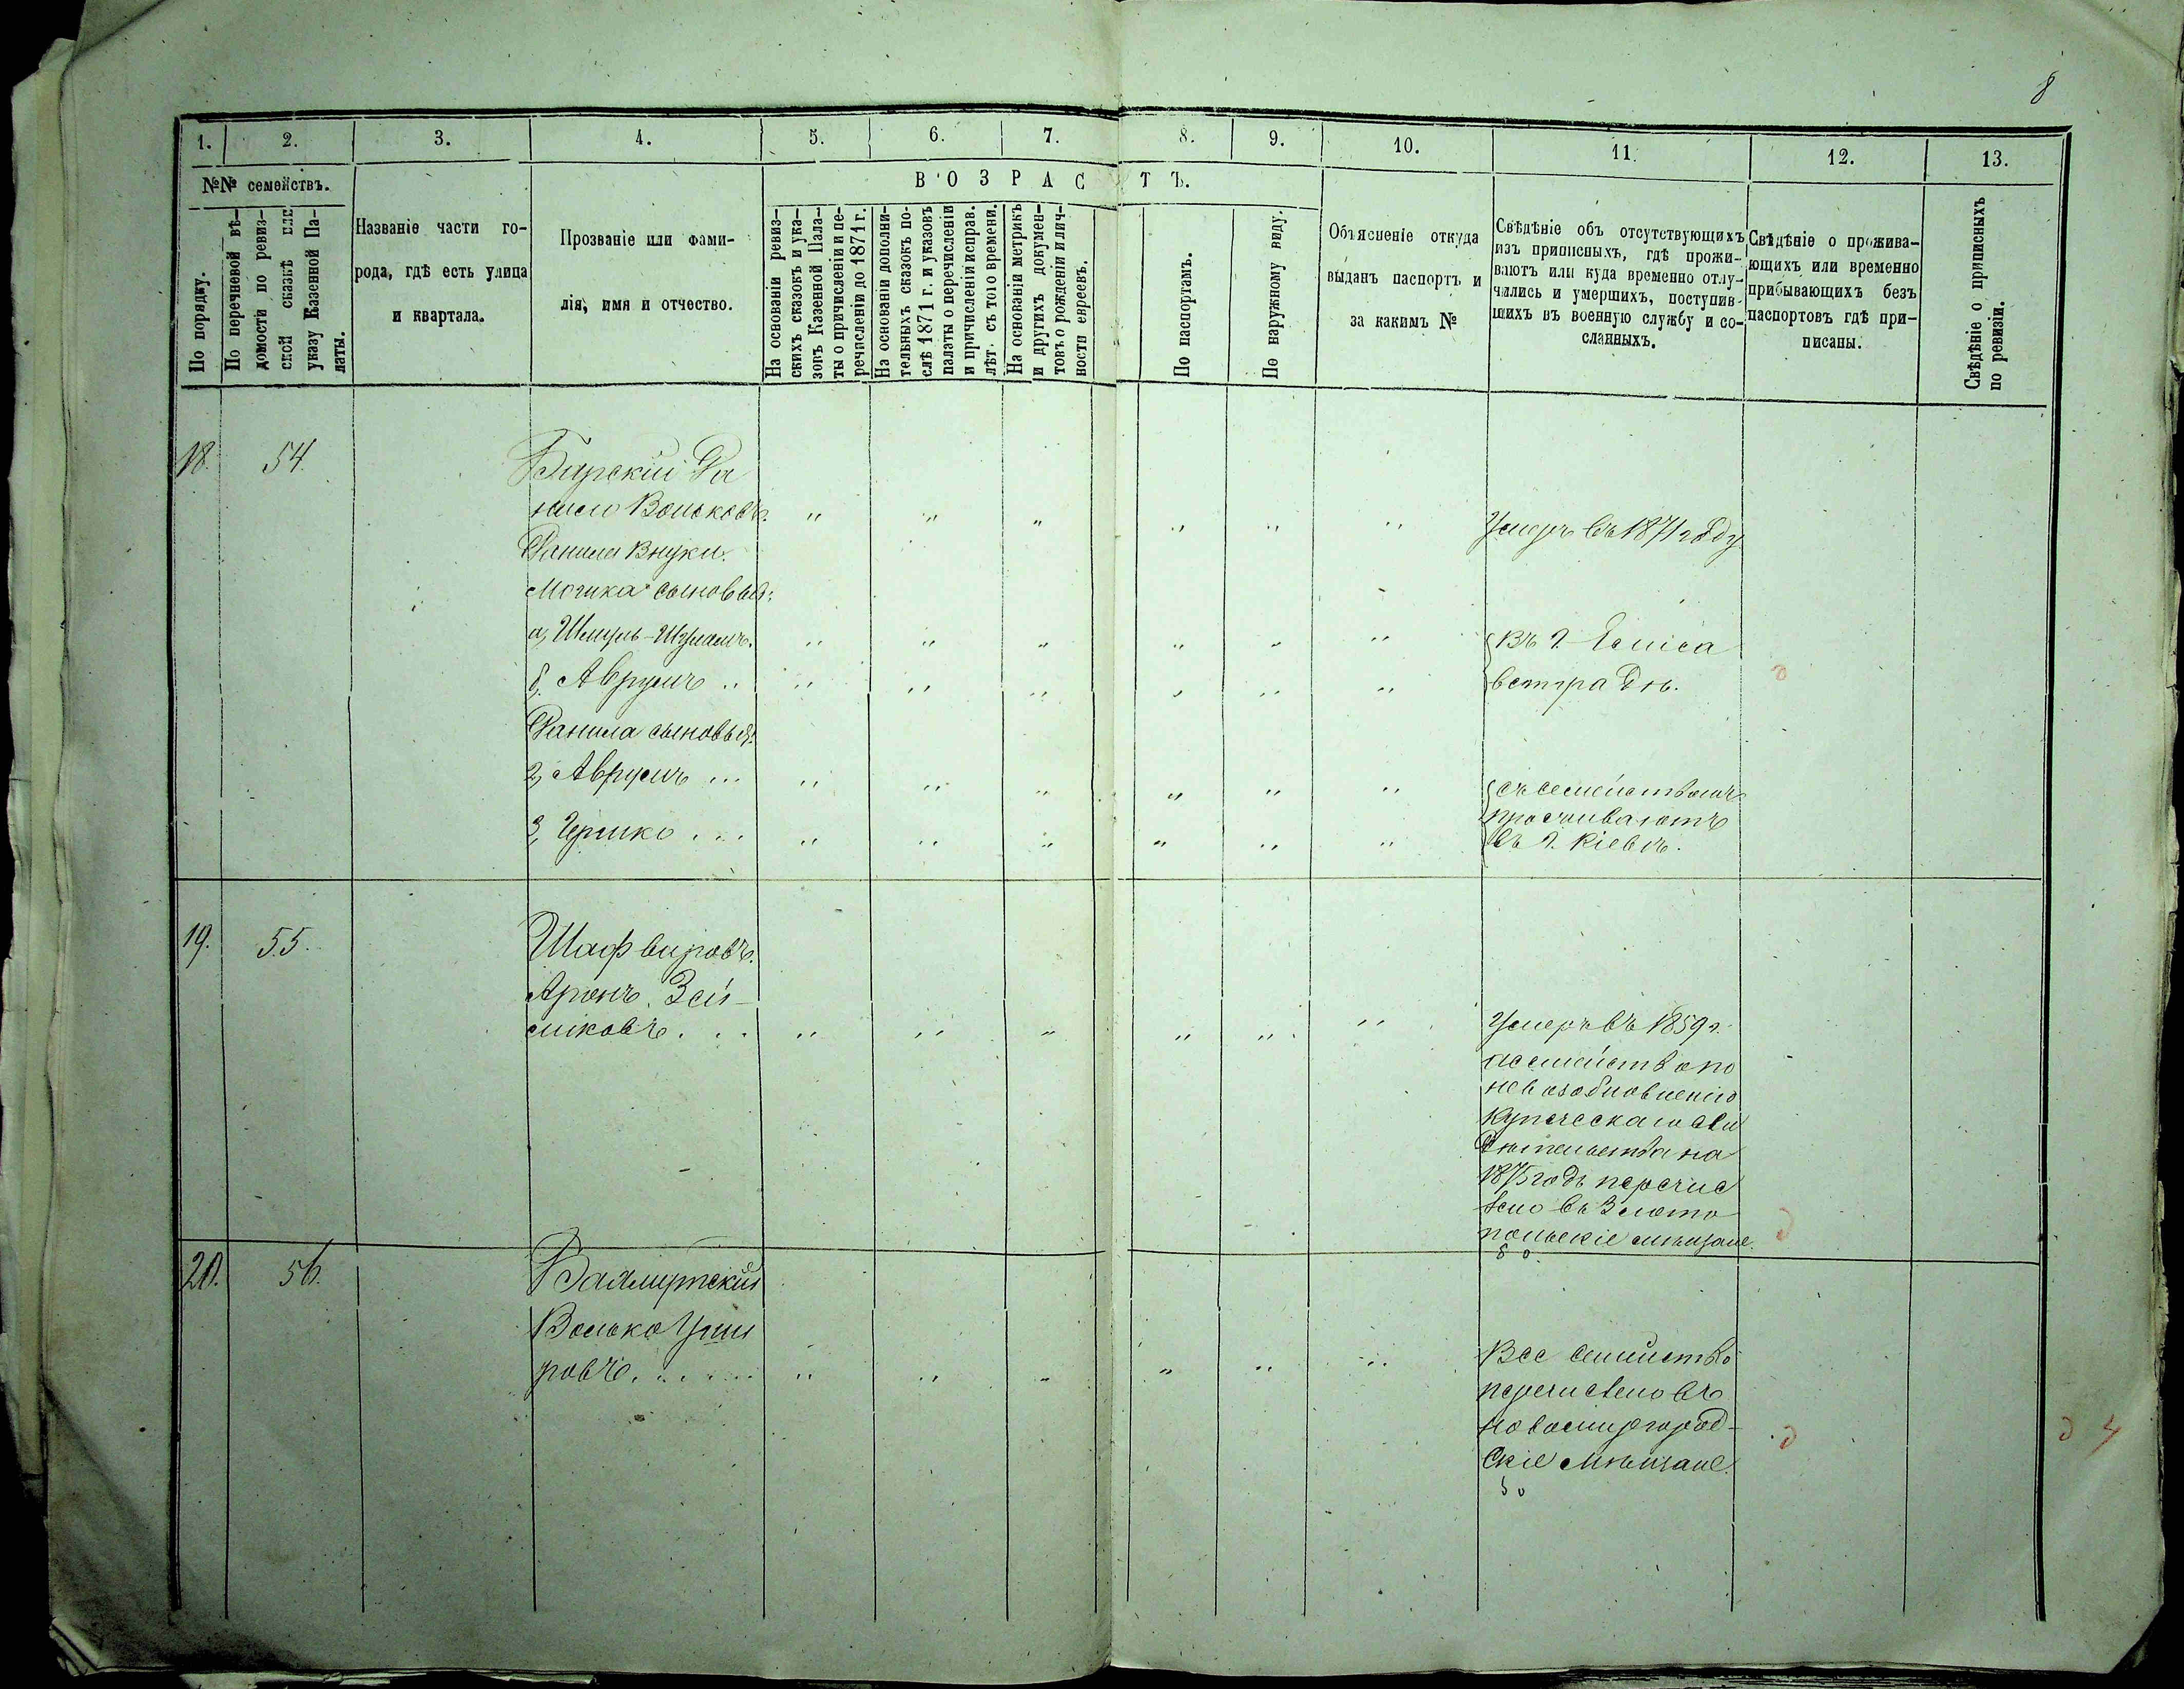 8
1. 2. 3. 4. 5. 6. 7. 8. 9. 10. 11. 12. 13.
№№ семействъ.
ВОЗРАСТЪ.
По порядку.
По перечневой вѣ-
домости по ревиз-
ской сказкѣ или
указу Казенной Па-
латы.
Названіе части го-
рода, гдѣ есть улица
и квартала.
Прозваніе или фами-
лія, имя и отчество.
На основаніи ревиз-
скихъ сказокъ и ука-
зовъ Казенной Пала-
ты о причисленіи и пе-
речисленіи до 1871 г.
На основаніи дополни-
тельныхъ сказокъ по-
слѣ 1871 г. и указовъ
палаты о перечисленіи
и причисленіи исправ.
лѣт. съ того времени.
На основаніи метрикъ
и другихъ докумен-
товъ о рожденіи и лич-
ности евреевъ.
По паспортамъ.
По наружному виду.
Объясненіе откуда
выданъ паспортъ и
за какимъ №
Свѣдѣніе объ отсутствующихъ
изъ приписныхъ, гдѣ прожи-
ваютъ или куда временно отлу-
чились и умершихъ, поступив-
шихъ въ военную службу и со-
сланныхъ.
Свѣдѣніе о прожива-
ющихъ или временно
прибывающихъ безъ
паспортовъ гдѣ при-
писаны.
Свѣдѣніе о приписныхъ
по ревизіи.
18. 54. Барскій Да
нило Вольковъ. Умеръ въ 1871 году
Данила Внуки.
Мошка сыновья:
а, Шмуль-Шулимъ. Въ г. Елиса
б, Аврумъ .. ветградѣ.
Данила сыновья:
2, Аврумъ ... съ семействомъ
проживаютъ
3, Гершко ... въ г. Кіевѣ.
19. 55. Шафвировъ.
Аронъ Зей-
ликовъ. . . Умеръ въ 1859 г.
а семейство по
невозобновленію
Купеческаго сви
дѣтельства на
1875 годъ перечис
лено въ Злато
польскіе мѣщане.
20. 56. Бахмутскій
Волько
ровъ. Все семейство
перечислено въ
Новомиргород-
скіе Мѣщане.